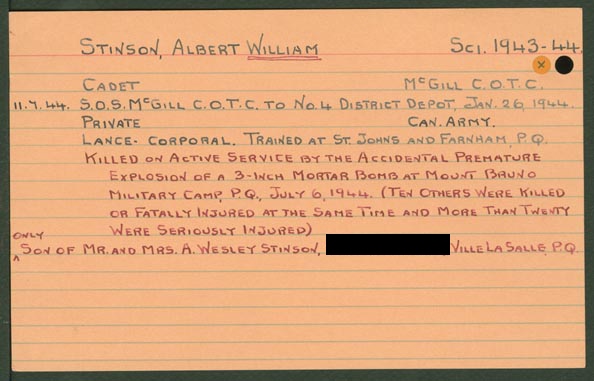 STINSON, ALBERT WILLIAM SCI. 1943-44.
CADET MCGILL C.O.T.C.
11.7.44. S.O.S. MCGILL C.O.T.C. TO NO.4 DISTRICT DEPOT, JAN. 26, 1944.
PRIVATE CAN. ARMY.
LANCE-CORPORAL. TRAINED AT ST. JOHNS AND FARNHAM, P.Q.
KILLED ON ACTIVE SERVICE BY THE ACCIDENTAL PREMATURE
EXPLOSION OF A 3-INCH MORTAR BOMB AT MOUNT BRUNO
MILITARY CAMP, P.Q., JULY 6, 1944. (TEN OTHERS WERE KILLED
OR FATALLY INJURED AT THE SAME TIME AND MORE THAN TWENTY
WERE SERIOUSLY INJURED)
ONLY
SON OF MR. AND MRS. A. WESLEY STINSON, , VILLE LA SALLE, P.Q.